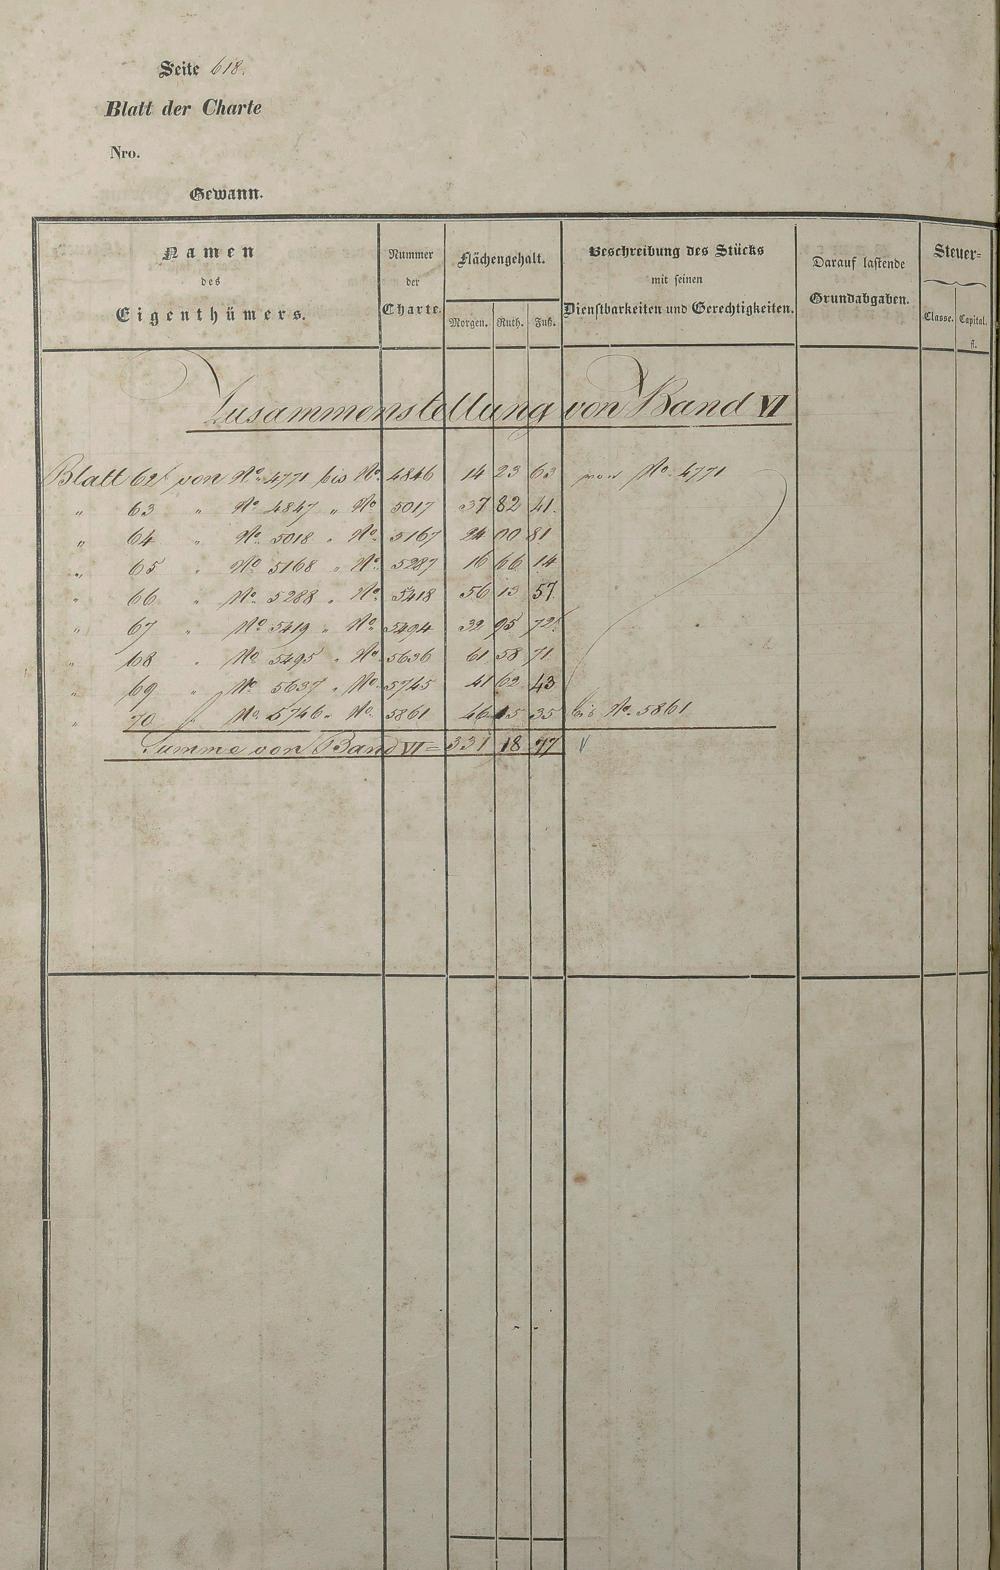 Seite 618.
Blatt der Charte
Nro.
Gewann.
Namen des Eigenthümers.
Nummer der Charte.
Flächengehalt.
Morgen. Ruth. Fuß.
Beschreibung des Stücks mit seinen Dienstbarkeiten und Gerechtigkeiten.
Darauf lastende Grundabgaben.
Steuer=
Classe. Capital. fl.
Zusammenstellung von Band VI
Blatt 62 von No. 4771 bis No. 4846 14 23 63 von No. 4771
" 63 " No 4847 " No 5017 37 82 41.
" 64 " No 5018 " No. 5167 24 00 81
" 65 " No 5168 " No 5287 16 66 14
" 66 " No. 5288 " No. 5418 56 13 57
" 67 " No 5419 " No. 5494 32 95 72
" 68 " No 5495 " No. 5636 61 58 71
" 69 " No. 5637 " No. 5745 41 62 43
" 70 " No. 5746 " No. 5861 46 15 35 bis No. 5861
Summe von Band VI = 331 18 77